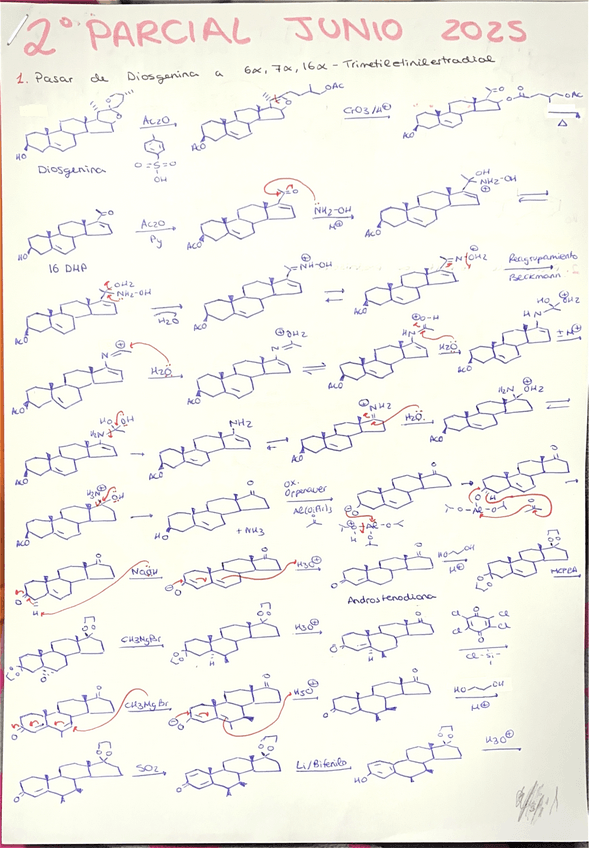 2º PARCIAL JUNIO 2025
1. Pasar de Diosgenina a 6α, 7α, 16α - Trimetiletinilestradiol
OAc
Ac2O
CrO3/H⊕
OAc
HO
AcO
AcO
Δ
Diosgenina
O=S=O
OH
Ac2O
Py
NH2-OH
H⊕
OH
NH2-OH
HO
AcO
AcO
16 DHP
OH2
NH-OH
H2O
NH-OH
N
OH2
Reagrupamiento
Beckmann
AcO
AcO
AcO
N
H2O
N
OH2
O-H
HN
H2O
HO
OH2
HN
± H⊕
AcO
AcO
AcO
AcO
HO
OH
H2N
NH2
NH2
H2O
H2N
OH2
AcO
AcO
AcO
AcO
H3N
OH
Ox.
Oppenauer
Al(OiPr)3
AcO
HO
+ NH3
NaOH
H3O⊕
HO
OH
H⊕
MCPBA
Androstenodiona
CH3MgBr
H3O⊕
Cl
Cl
Cl
Cl
Cl-Si-
CH3MgBr
H3O⊕
HO
OH
H⊕
SO2
Li/Bifenilo
H3O⊕
HO